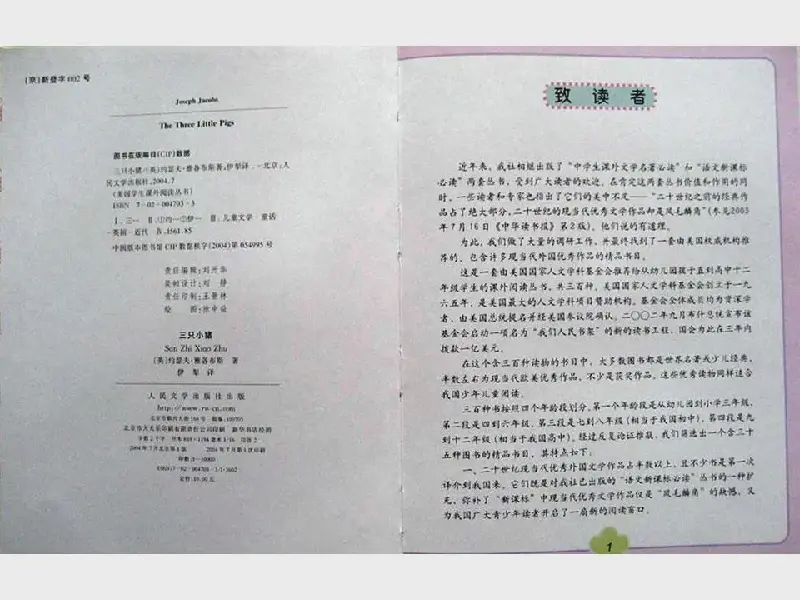 [京]新登字002号
Joseph Jacobs
The Three Little Pigs
图书在版编目(CIP)数据
三只小猪/(英)约瑟夫·雅各布斯著;伊犁译.-北京:人
民文学出版社,2004.7
(美国学生课外阅读丛书)
ISBN 7-02-004703-3
Ⅰ.三… Ⅱ.①约…②伊… Ⅲ.儿童文学 童话
-英国-近代 Ⅳ.I561.85
中国版本图书馆CIP数据核字(2004)第054995号
责任编辑:刘开华
装帧设计:刘 静
责任印制:王景林
三只小猪
San Zhi Xiao Zhu
(英)约瑟夫·雅各布斯 著
伊 犁 译
人民文学出版社出版
http://www.rw-cn.com
2004年7月北京第1版 2004年7月第1次印刷
致读者
近年来,我社相继出版了“中学生课外文学名著必读”和“语文新课标
必读”两套丛书,受到广大读者的欢迎。在肯定这两套丛书价值和作用的同
时,一些读者和专家也指出了它们的美中不足——“二十世纪之前的经典作
品占了绝大部分,二十世纪的现当代优秀文学作品却是凤毛麟角”(参见2003
年7月16日《中华读书报》第2版)。他们说的有道理。
为此,我们做了大量的调研工作,并最终找到了一套由美国权威机构推
荐的、包含许多现当代外国优秀作品的精品书目。
这是一套由美国国家人文学科基金会推荐给从幼儿园孩子直到高中十二
年级学生的课外阅读丛书,共三百种。美国国家人文学科基金会创立于一九
六五年,是美国最大的人文学科项目赞助机构。基金会全体成员均为资深学
者,由美国总统提名并经美国参议院确认。二〇〇二年九月布什总统宣布该
基金会启动一项名为“我们人民书架”的新的读书工程,国会为此在三年内
拨款一亿美元。
在这个含三百种读物的书目中,大多数图书都是世界名著或少儿经典,
半数左右为现当代欧美优秀作品,不少是获奖作品。这些优秀读物同样适合
我国少年儿童阅读。
三百种书按照四个年龄段划分。第一个年龄段是从幼儿园到小学三年级,
第二段是四到六年级,第三段是七到八年级(相当于我国初中),第四段是九
到十二年级(相当于我国高中)。经过反复论证推敲,我们筛选出一个含三十
五种图书的精品书目,其特点如下:
一、二十世纪现当代优秀外国文学作品占半数以上,且不少书是第一次
译介到我国来。它们既是对我社已出版的“语文新课标必读”丛书的一种扩
充,弥补了“新课标”中现当代优秀文学作品仅是“凤毛麟角”的缺憾,又
为我国广大青少年读者开启了一扇新的阅读窗口。
1